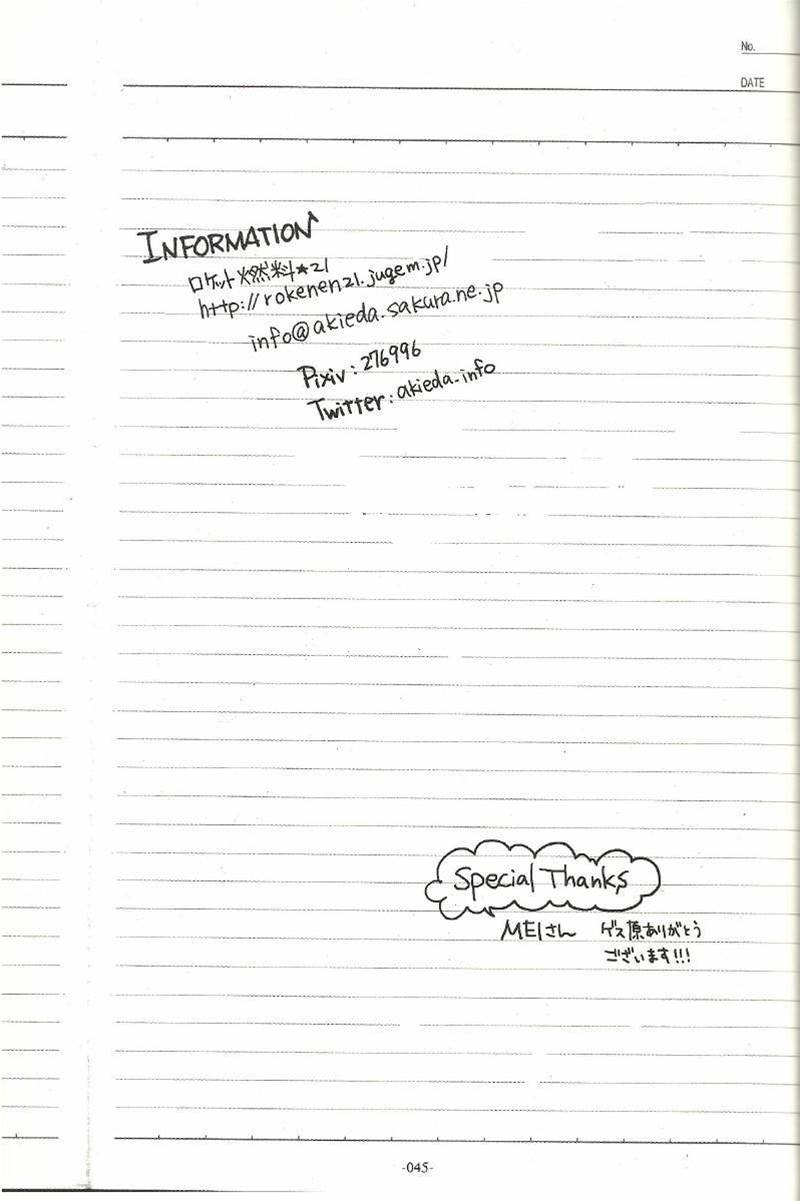 No.
DATE
INFORMATION
ロケット燃料★21
http://rokenen21.jugem.jp/
info@akieda.sakura.ne.jp
Pixiv:276996
Twitter:akieda_info
Special Thanks
MEIさん ゲス原ありがとう
ございます!!!
-045-